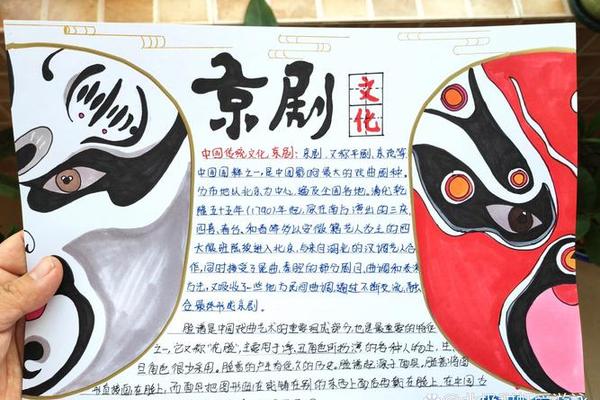 京剧
文化
中国传统文化京剧：京剧，又称平剧、京戏等
中国国粹之一，是中国影响最大的戏曲剧种，
分布地以北京为中心，遍及全国各地。清代乾
隆五十五年（1790）年起，原在南方演出的三庆，
四喜、春台、和春等多以安徽籍艺人为主的四
大徽班陆续进入北京，与来自湖北的汉调艺人合
作，同时接受了昆曲、秦腔的部分剧目、曲调和表演
方法，又吸收了一些地方民间曲调，通过不断交流，融
合最终形成京剧。
脸谱是中国戏曲艺术的重要组成部分，也是最重要的特征
之一，它又称“花脸”，主要用于净、丑角色所扮演的各种人物上，生
旦角色很少采用。脸谱的产生有悠久的历史。脸谱起源于面具，脸谱将图
直接画在脸上，而面具把图形画在或铸在别的东西上面后再戴在脸上，在中国古